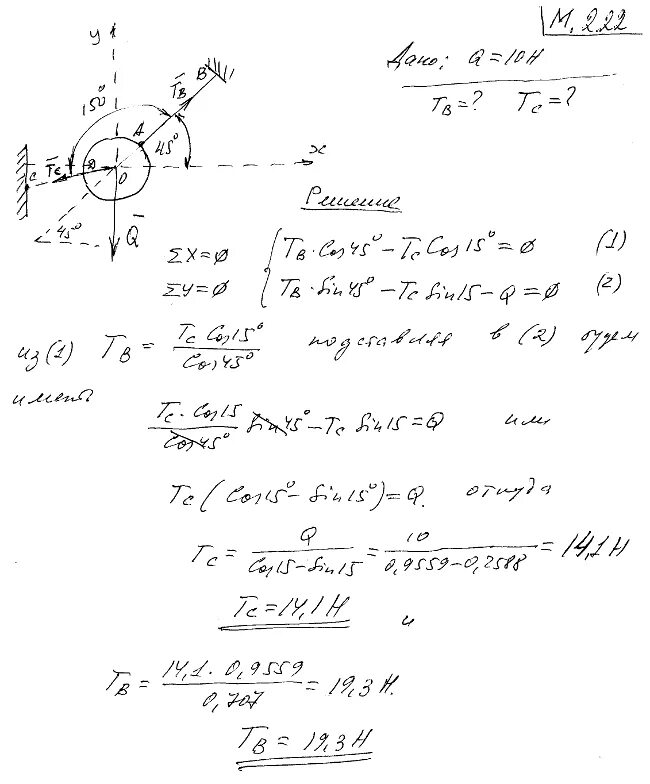 М. 2.22
Дано: Q = 10Н
T_B = ? T_C = ?
y
B
T̄_B
150°
A
45°
x
C T̄_C D
O
45°
Q̄
Решение
ΣX = 0 { T_B · Cos45° – T_C Cos15° = 0 (1)
ΣY = 0 { T_B · Sin45° – T_C Sin15 – Q = 0 (2)
из (1) T_B = T_C Cos15° / Cos45° подставляя в (2) будем
иметь
T_C · Cos15 / Cos45° Sin45° – T_C Sin15 = Q или
T_C (Cos15° – Sin15°) = Q. откуда
T_C = Q / Cos15 – Sin15 = 10 / 0,9559 – 0,2588 = 14,1 Н
T_C = 14,1 Н и
T_B = 14,1 · 0,9559 / 0,707 = 19,3 Н.
T_B = 19,3 Н